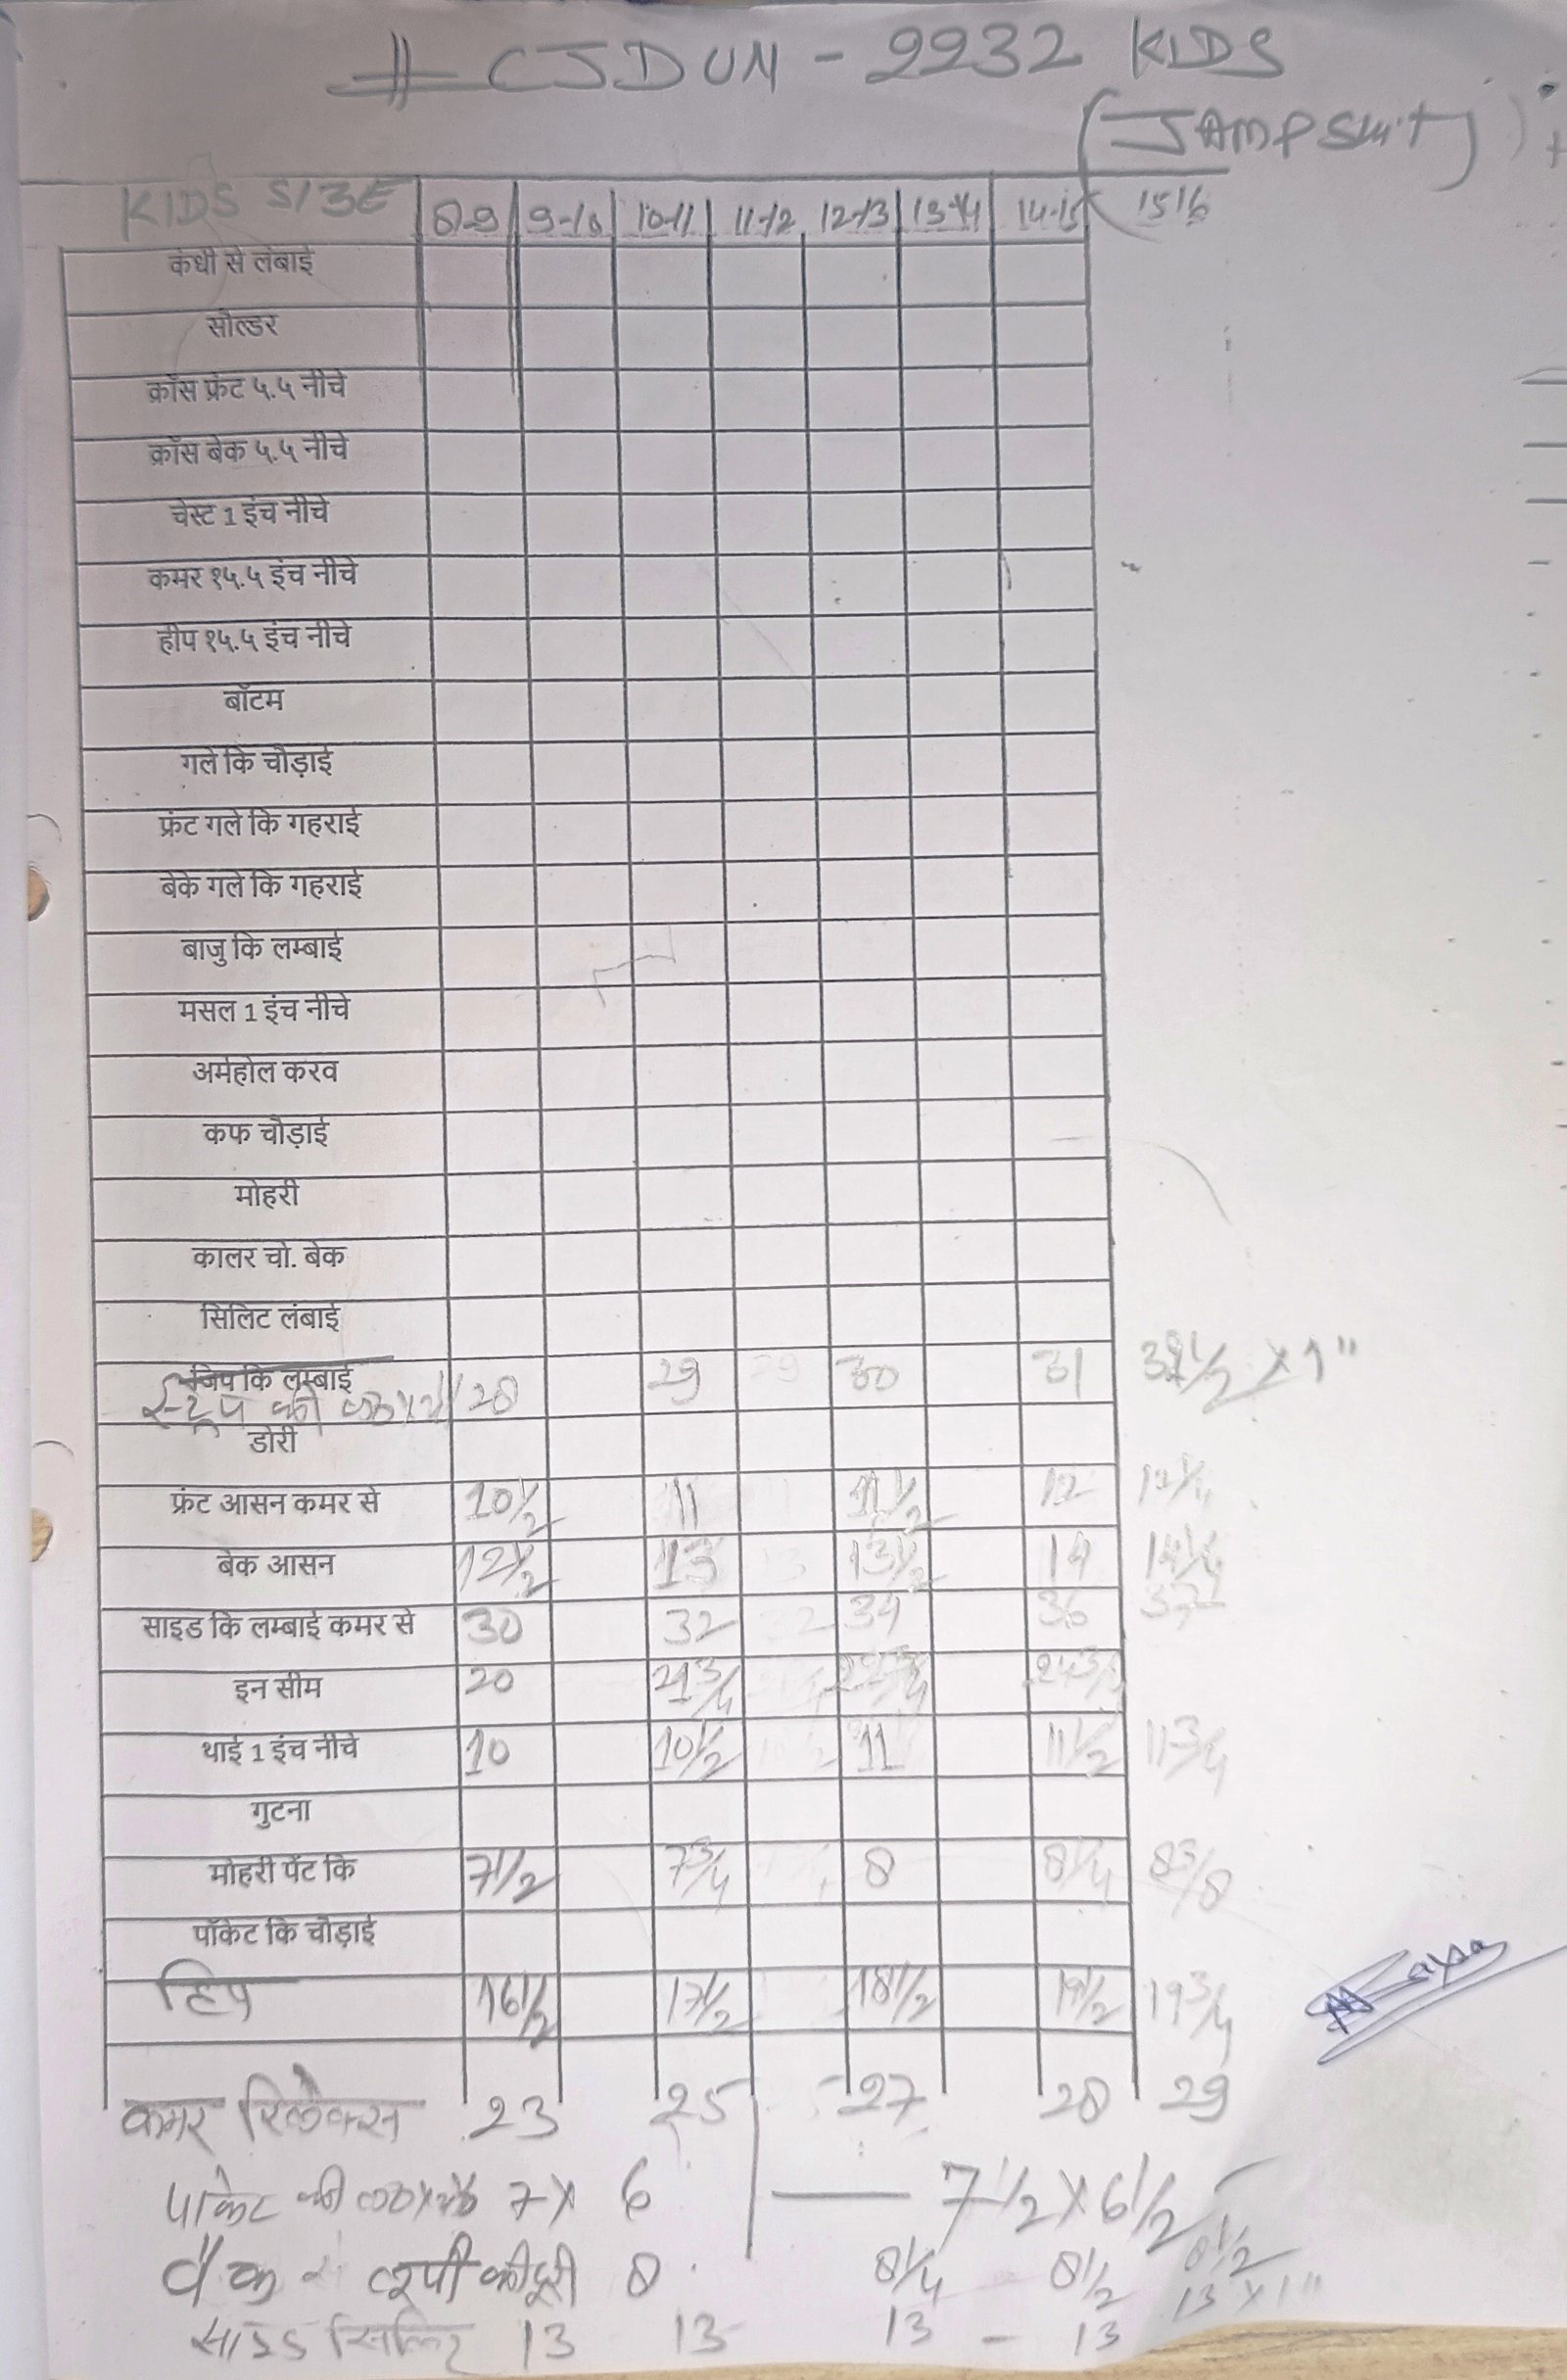 # CJDUN - 2232 KIDS
(JAMPSuit)
KIDS SIZE 8-9 9-10 10-11 11-12 12-13 13-14 14-15 15 16
कंधी से लंबाई
सोल्डर
क्रॉस फ्रंट ५.५ नीचे
क्रॉस बेक ५.५ नीचे
चेस्ट 1 इंच नीचे
कमर १५.५ इंच नीचे
हीप १५.५ इंच नीचे
बॉटम
गले कि चौड़ाई
फ्रंट गले कि गहराई
बेके गले कि गहराई
बाजु कि लम्बाई
मसल 1 इंच नीचे
अर्महोल करव
कफ चौड़ाई
मोहरी
कालर चो. बेक
सिलिट लंबाई
जिप कि लम्बाई
28 29 29 30 31 1/2 x 1"
डोरी
फ्रंट आसन कमर से 10 1/2 11 11 11 1/2 12 12 1/4
बेक आसन 12 1/2 13 13 13 1/2 14 14 1/4
साइड कि लम्बाई कमर से 30 32 32 34 36 37
इन सीम 20 21 3/4 24 3/4
थाई 1 इंच नीचे 10 10 1/2 10 1/2 11 11 1/2 11 3/4
गुटना
मोहरी पेंट कि 7 1/2 7 3/4 8 8 1/4 8 3/8
पॉकेट कि चौड़ाई
हिप 16 1/2 17 1/2 18 1/2 19 1/2 19 3/4
कमर रिलेक्स 23 25 27 28 29
पाकेट की 7 x 6 — 7 1/2 x 6 1/2
बैक से लूपी की दूरी 8 8 1/4 8 1/2 8 1/2
13 x 1"
साइड सिलिट 13 13 13 - 13